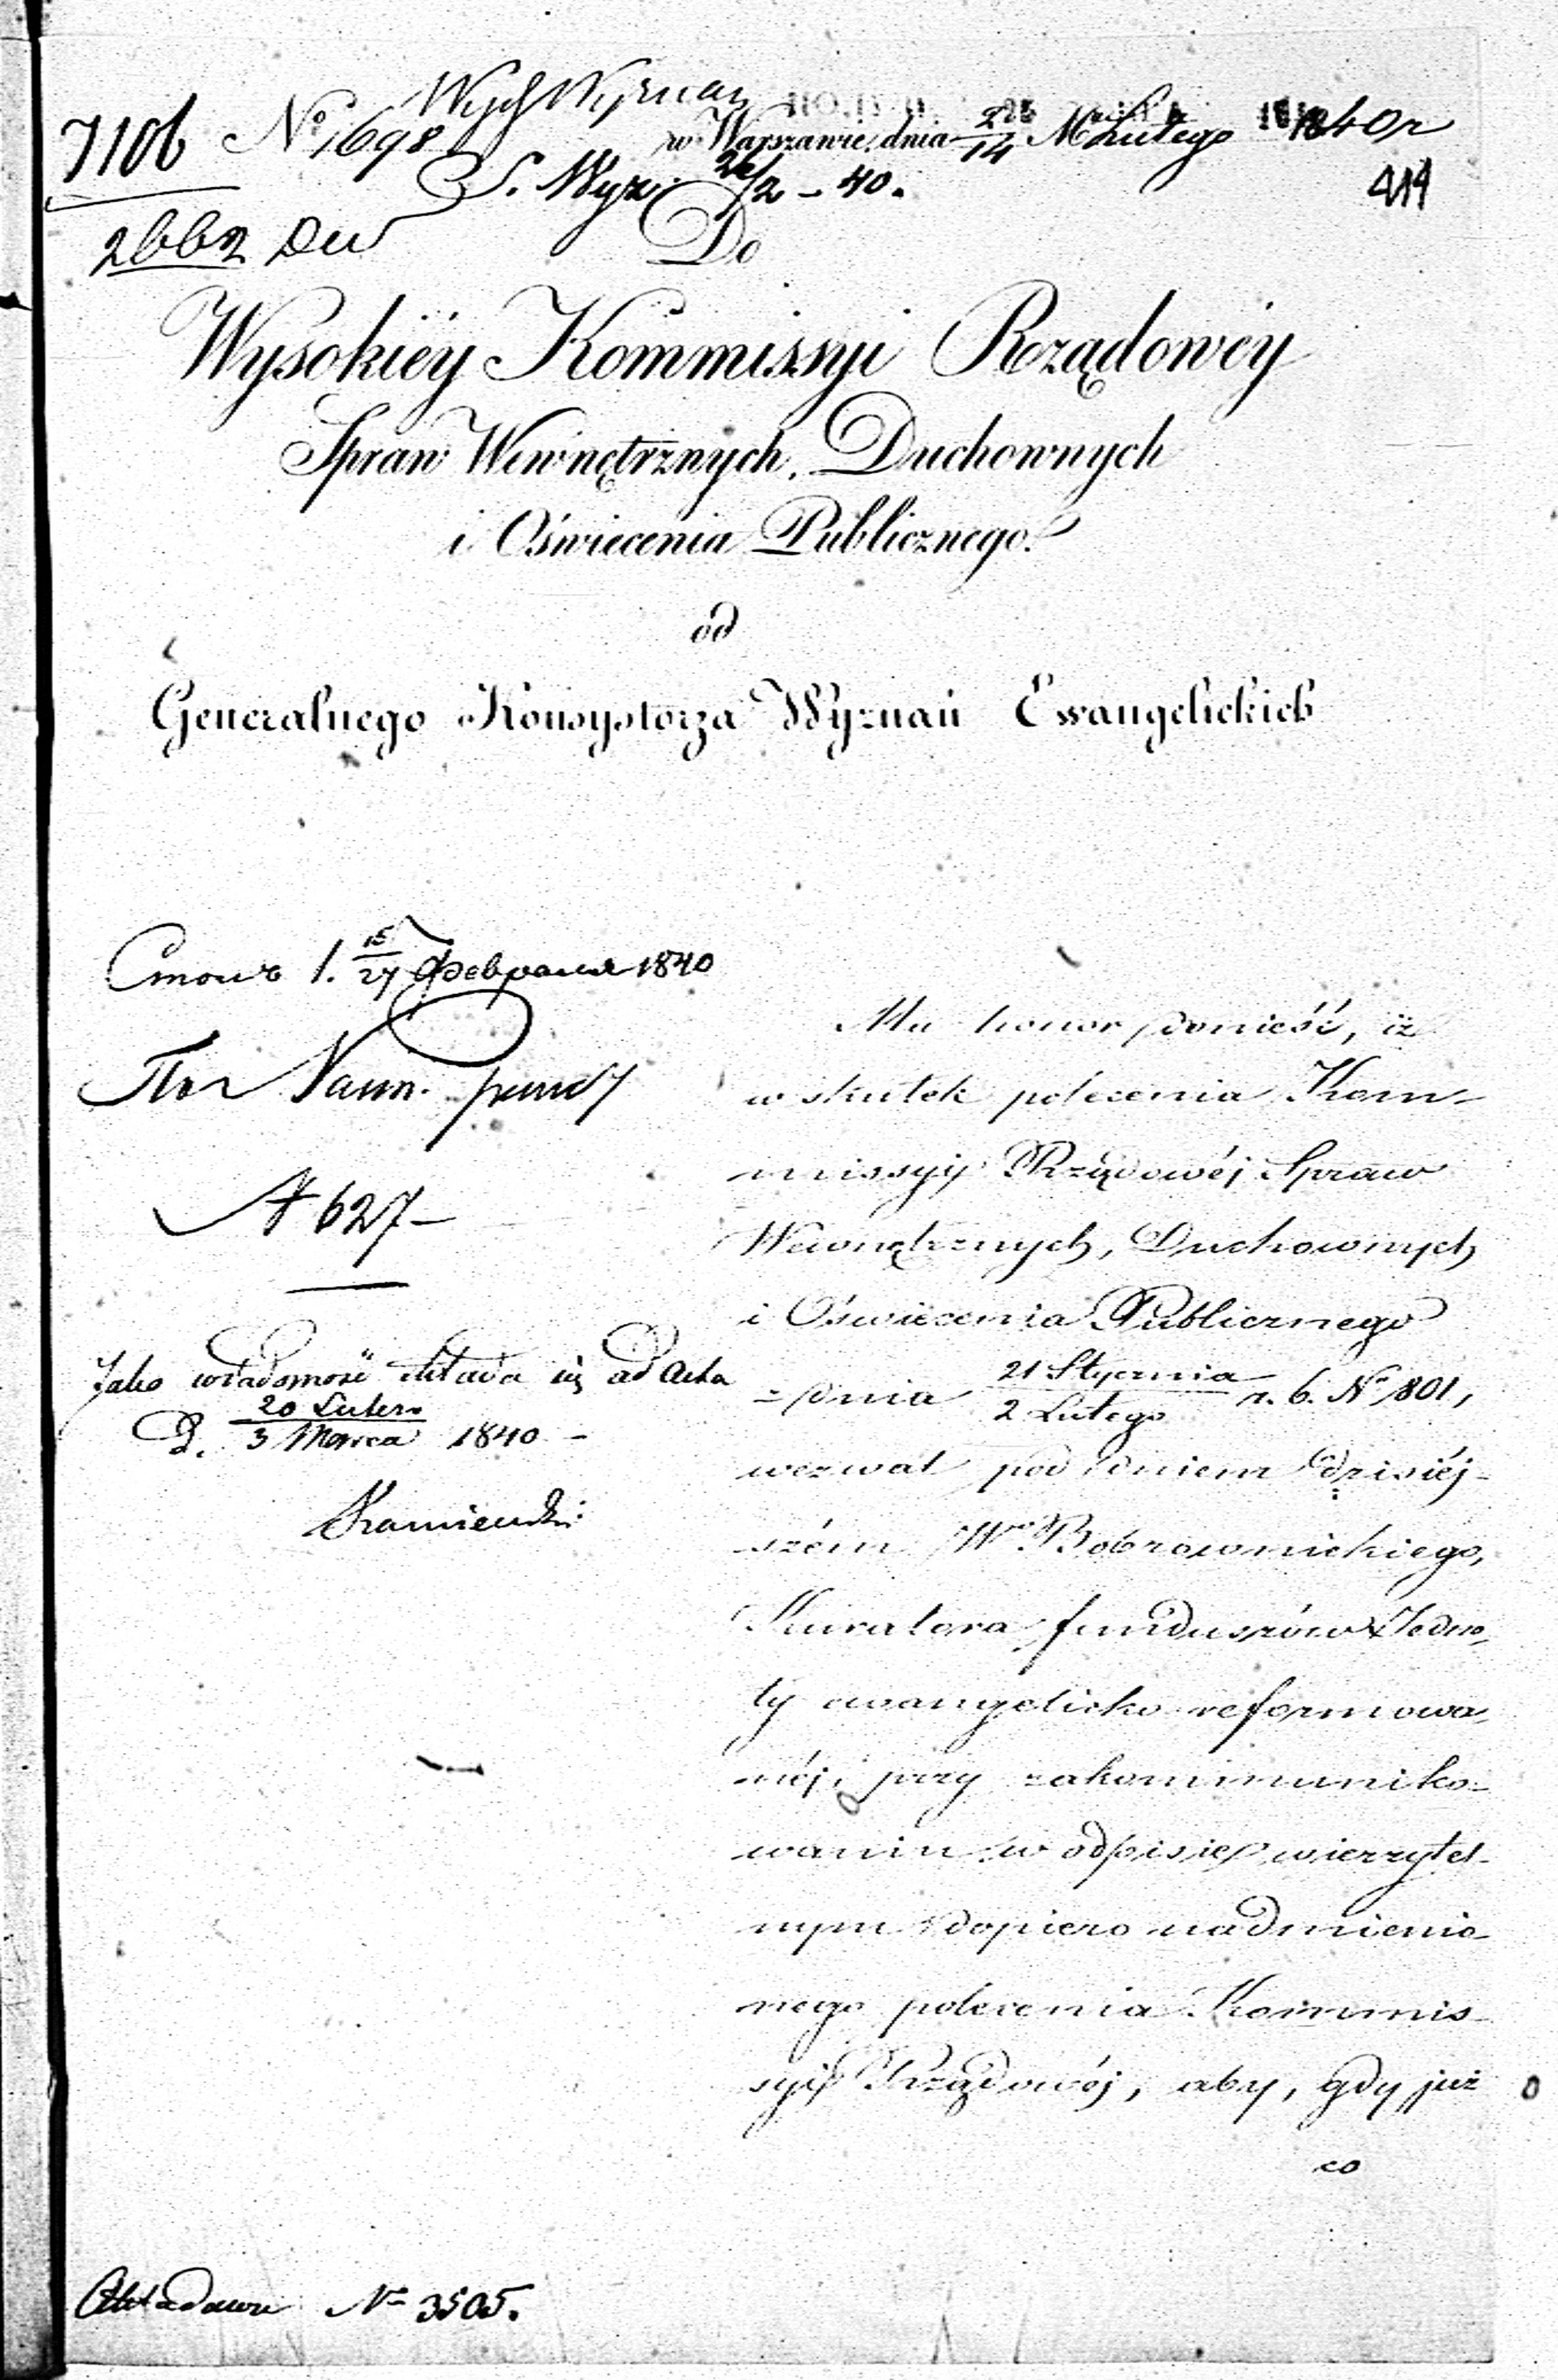 7106 N° 1698 Wydz Wyznań
w Warszawie, dnia 2/14 Lutego 1840 r
S. Wyz. 26/2 – 40.
414
2662 Du
Do
Wysokiéy Kommissyi Rządowéy
Spraw Wewnętrznych, Duchownych
i Oświecenia Publicznego.
od
Generalnego Konsystorza Wyznań Ewangelickich
Столъ 1. 15/27 Февраля 1840
№ 627 –
Jako wiadomość składa się ad acta
D. 20 Lutego/3 Marca 1840 –
Ma honor donieść, iż
w skutek polecenia Kom-
missyi Rządowéj Spraw
Wewnętrznych, Duchownych
i Oświecenia Publicznego
z dnia 21 Stycznia/2 Lutego r. b. N° 801,
wezwał pod dniem dzisiéj-
szém Wo Bobrownickiego,
Kuratora funduszów Jedno-
ty ewangelicko reformowa-
néj, przy zakommuniko-
waniu w odpisie wierzytel-
nym dopiero nadmienio-
nego polecenia Kommis-
syi Rządowéj, aby, gdy już
co
N° 3505.